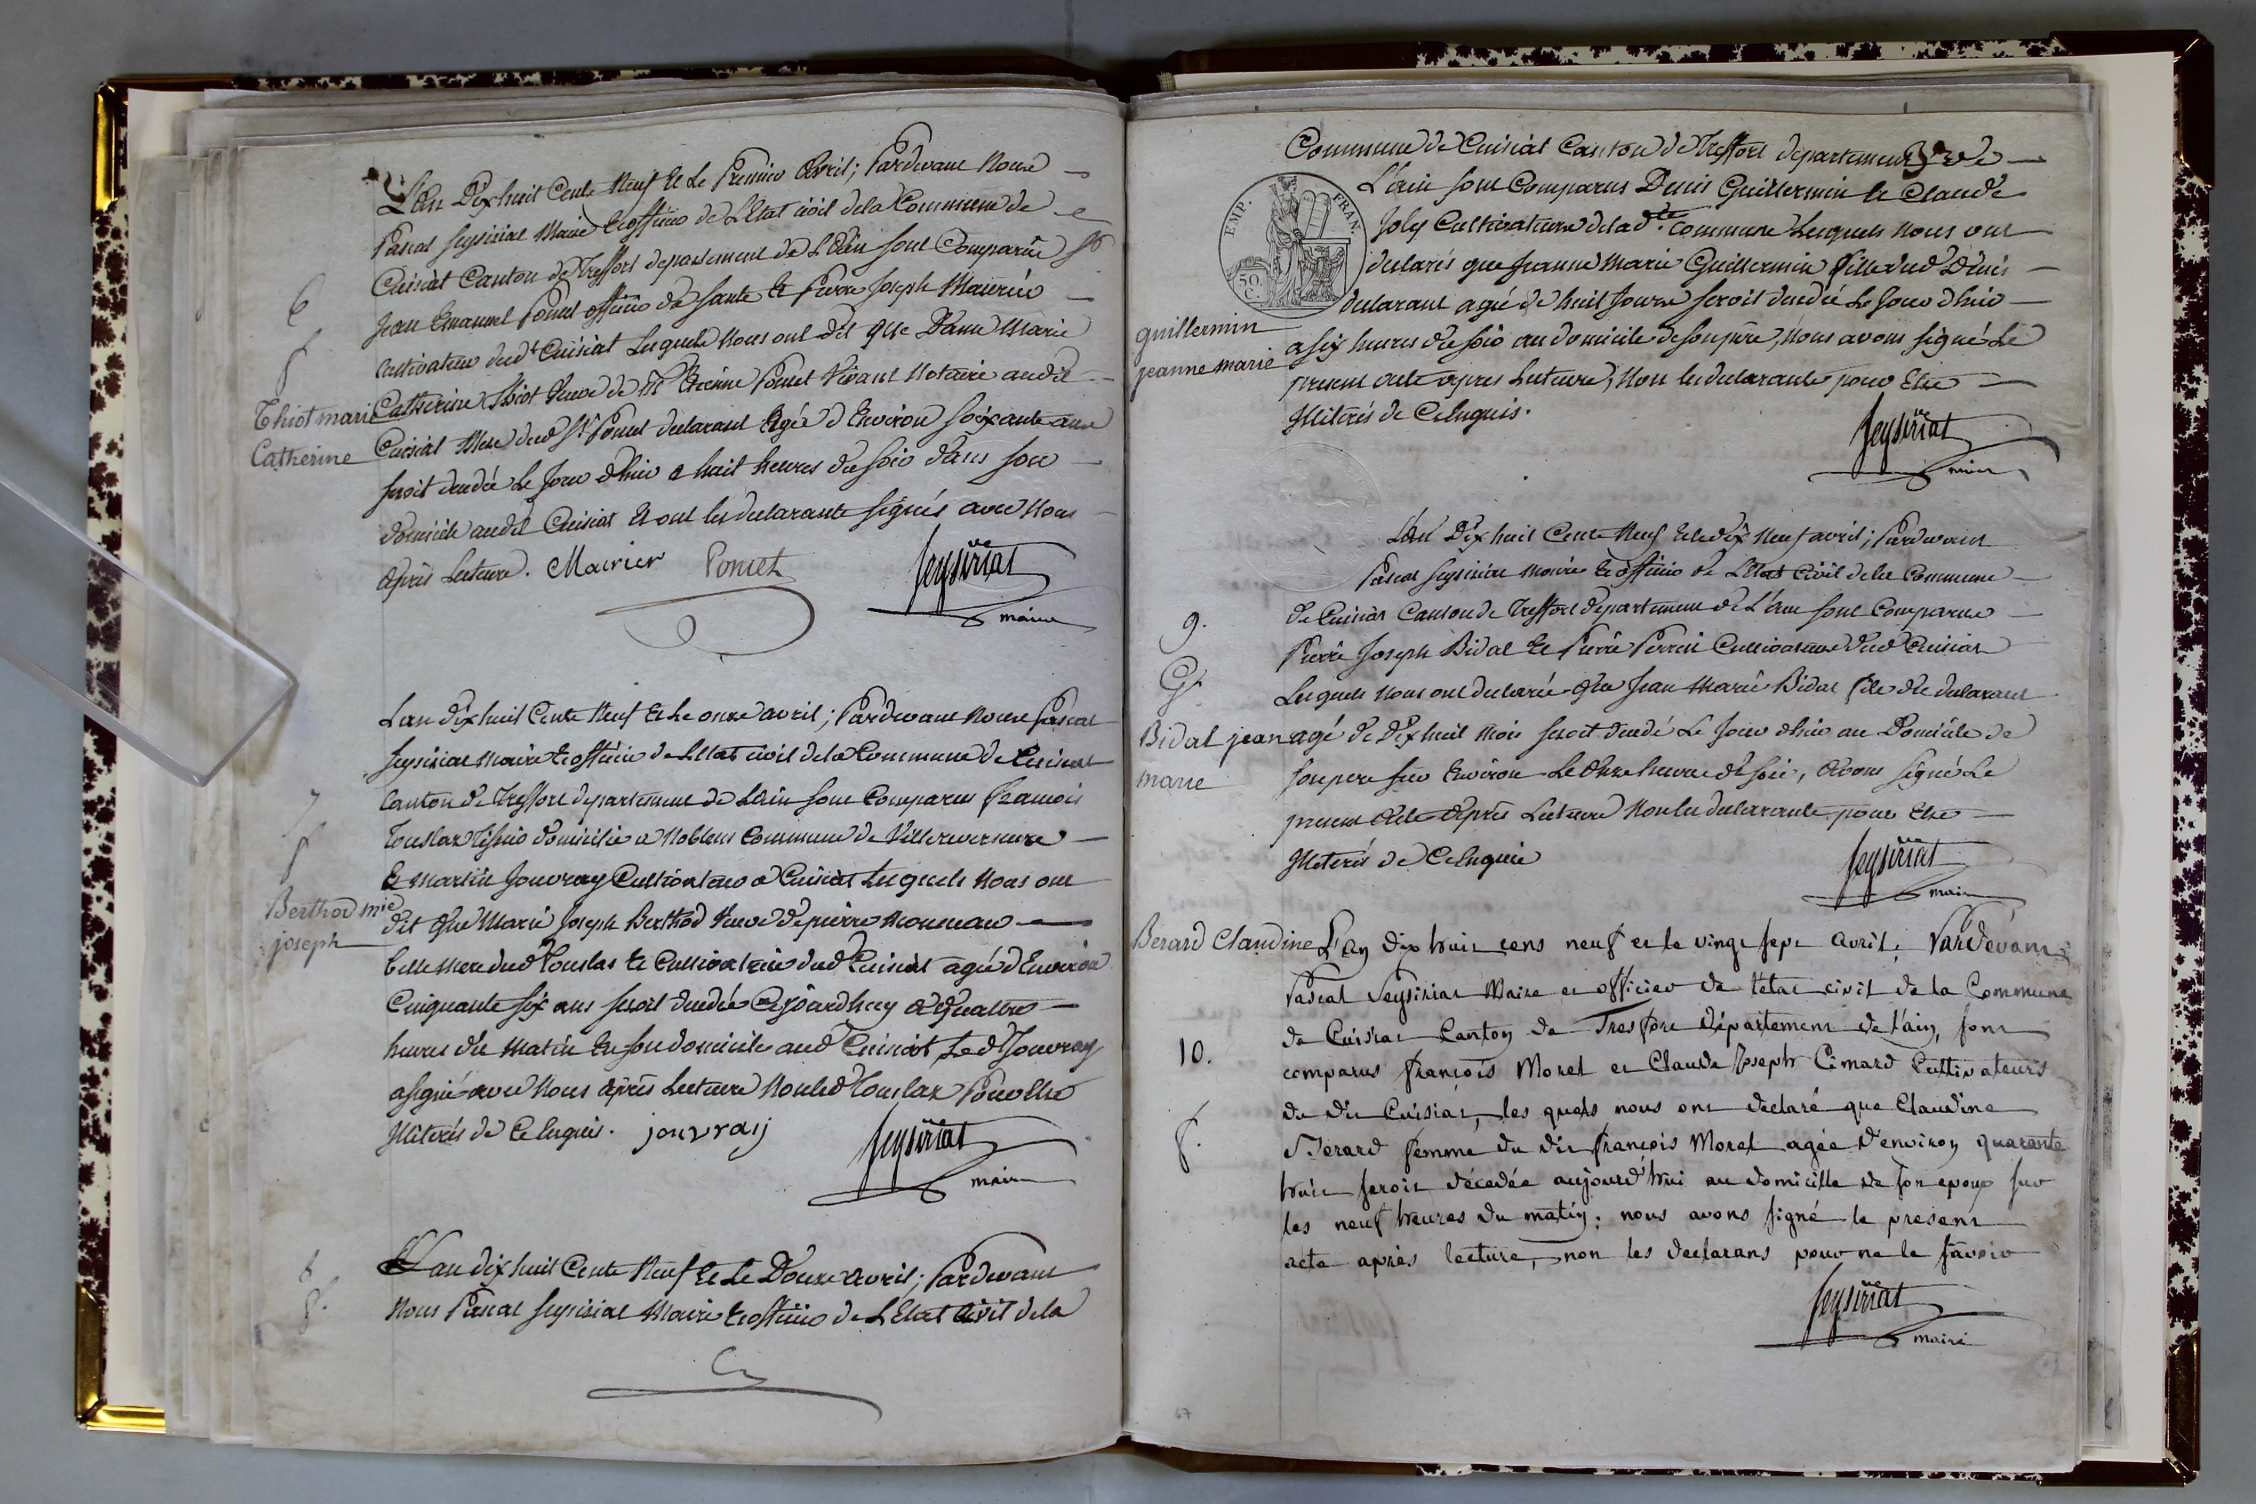 L'an Dix huit Cents Neuf Et Le Premier Avril; Pardevant Nous
Pascal Seysiriat Maire Et officier de L'Etat civil de la Commune de
Cuisiat Canton de Treffort departement de L'Ain sont Comparus Sr
Jean Emanuel Poncet officier de Santé Et Pierre Joseph Mairier
6
f
Cultivateur dudt Cuisiat Lesquels Nous ont dit que Dame Marie
Thiot marie
Catherine
Catherine Thiot Veuve de Mr Etienne Poncet Vivant Notaire audit
Cuisiat Mere dud Sr Poncet declarant Agée d'Environ soixante ans
seroit decedée Le Jour d'hier a huit heures du soir dans son
domicile audit Cuisiat Et ont les declarants signés avec Nous
après Lecture. Mairier Poncet Seysiriat
maire
L'an dix huit Cents Neuf Et Le onze avril; Pardevant Nous Pascal
Seysiriat Maire Et officier de L'Etat civil de la Commune de Cuisiat
7
f
Canton de Treffort departement de L'Ain sont Comparus francois
domicilié a Noblens Commune de Villereversure
Et Martin Jouvray Cultivateur a Cuisiat Lesquels Nous ont
Berthod mie
joseph
dit que Marie Joseph Berthod Veuve de pierre
belle Mere dud Et Cultivatrice dud Cuisiat agée d'Environ
Cinquante six ans seroit decedée Cejourdhuy a Quattre
heures du Matin En son domicile aud Cuisiat Led Jouvray
a signé avec Nous après Lecture Non led Pour Etre
Illiterés de Ce Enquis. jouvraij Seysiriat
maire
8
f.
L'an dix huit Cents Neuf Et Le Douze avril; Pardevant
Nous Pascal Seysiriat Maire Et officier de L'Etat Civil de la
Commune de Cuisiat Canton de Treffort departement de
EMP. FRAN.
50
C.
L'ain sont Comparus Denis Guillermin Et Claude
Joly Cultivateurs de lad.te Commune Lesquels Nous ont
declarés que Jeanne Marie Guillermin fille dud Denis
declarant agée de huit Jours seroit decedée Le Jour d'hier
guillermin
jeanne marie
a six heures du soir au domicile de son père, Nous avons signé Le
present acte après Lecture, Non les declarants pour Etre
Illiterés de Ce Enquis.
Seysiriat
maire
L'an Dix huit Cents Neuf Et le dix Neuf avril; Pardevant
Pascal Seysiriat Maire Et officier de L'Etat Civil de la Commune
9.
G.
de Cuisiat Canton de Treffort departement de L'ain sont Comparus
Pierre Joseph Bidal Et Pierre Perrin Cultivateurs dud Cuisiat
Lesquels Nous ont declarés que Jean Marie Bidal fils du declarant
Bidal jean
marie
agé de Dix huit Mois seroit decedé Le Jour d'hier au Domicile de
son pere sur Environ Le onze heures du soir, avons signé Le
present acte après Lecture Non les declarants pour Etre
Illiterés de Ce Enquis
Seysiriat
maire
Berard Claudine
10.
f.
L'an dix huit cens neuf et le vingt sept avril, Pardevant
Pascal Seysiriat Maire et officier de l'état civil de la Commune
de Cuisiat Canton de Tresfort Département de l'ain, sont
comparus françois Morel et Claude Joseph Cimard Cultivateurs
du dit Cuisiat, les quels nous ont declaré que Claudine
Berard femme du dit françois Morel agée d'environ quarante
huit seroit décedée aujourd'hui au domicille de son epoux sur
les neuf heures du matin; nous avons signé le present
acte après lecture, non les declarans pour ne le savoir
Seysiriat
maire
67